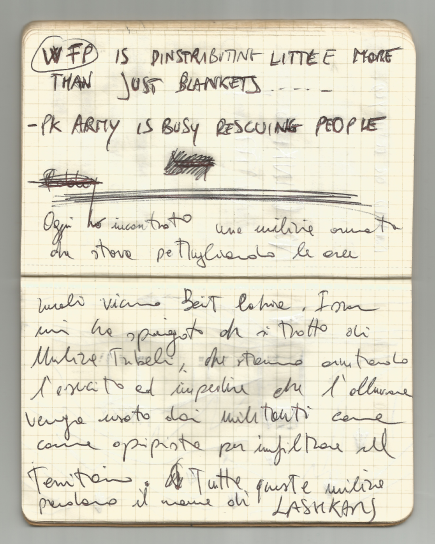 WFP IS DINSTRIBUTINE LITTLE MORE
THAN JUST BLANKETS.....
- PK ARMY IS BUSY RESCUING PEOPLE
Oggi ho incontrato una milizia armata
che stava pattugliando le aree
vicino
mi ha spiegato che si tratta di
Milizie Tribali, che stanno aiutando
l'esercito ed impedire che l'alluvione
venga usato dai militanti come
come per infiltrare
Territorio. Tutte queste milizie
prendono il nome di LASHKARS